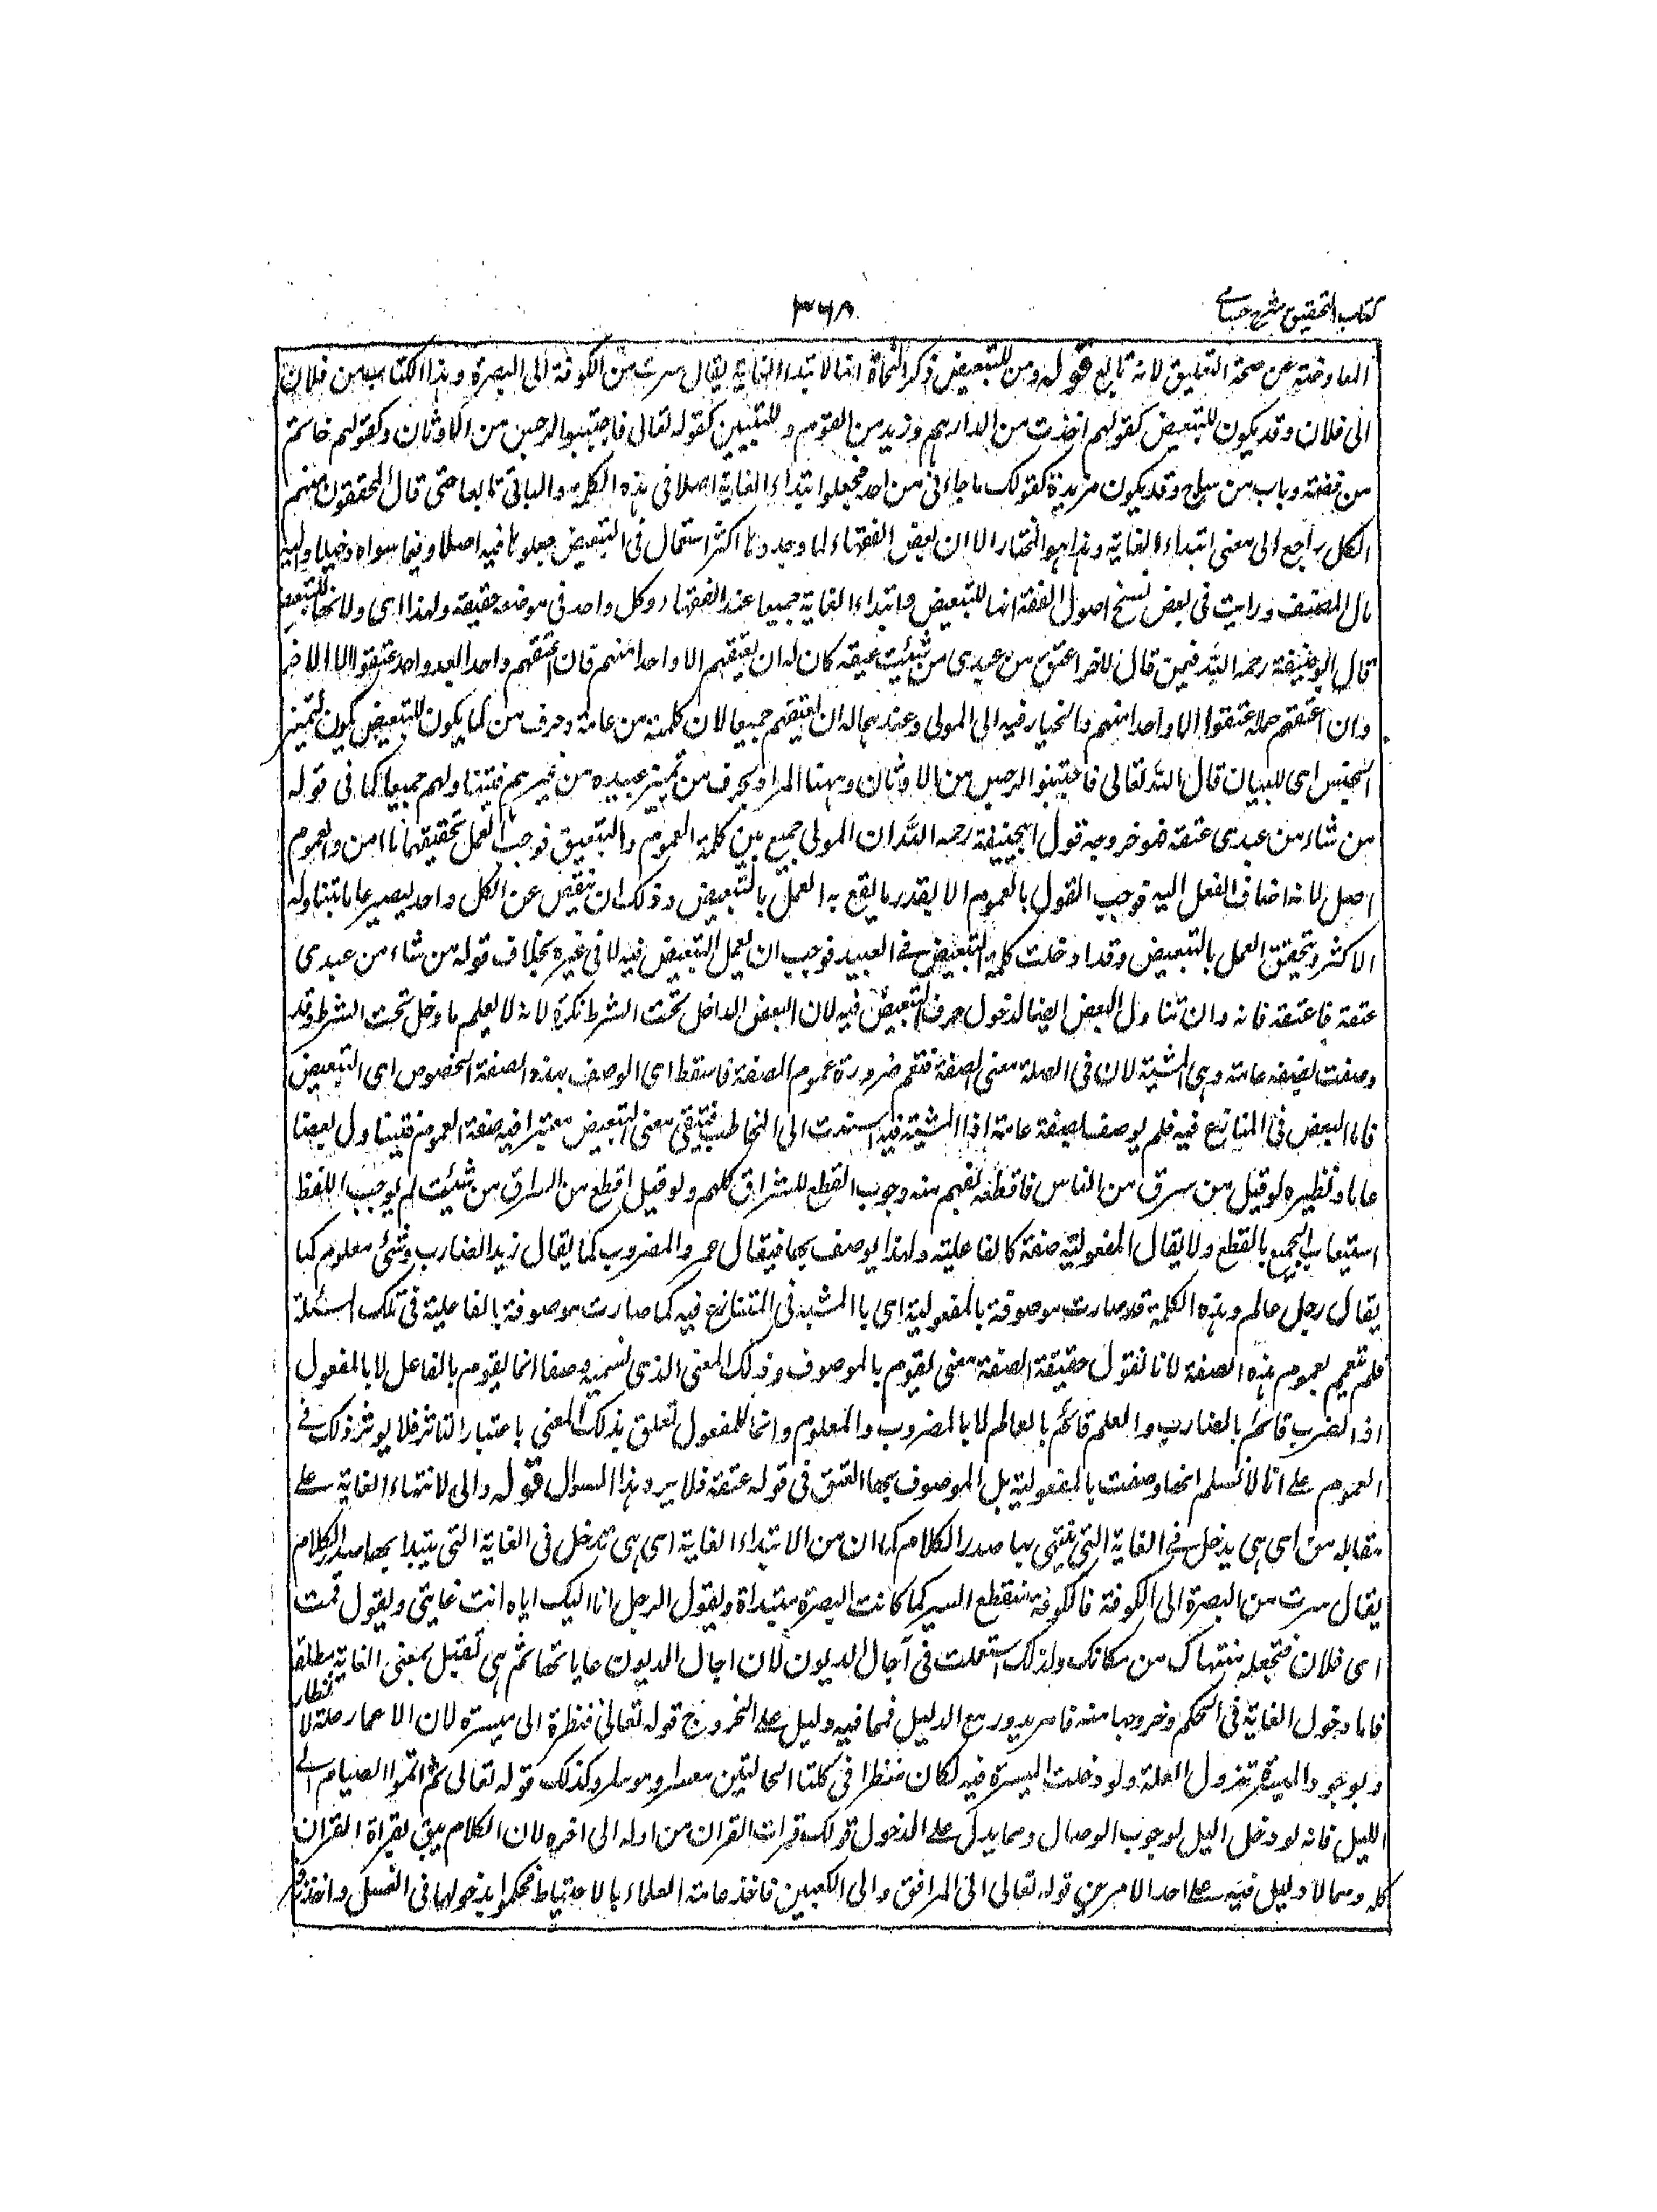 كتاب التحقيق شرح حسامى
٣٦٨
المعاوضة عن صحة التعليق لانه تابع قوله ومن للتبعيض ذكر النحاة انها لابتداء الغاية يقال سرت من الكوفة الى البصرة وهذا الكتاب من فلان
الى فلان وقد يكون للتبعيض كقولهم اخذت من الدراهم وزيد من القوم وللتبيين كقوله تعالى فاجتنبوا الرجس من الاوثان وكقولهم خاتم
من فضة وباب من ساج وقد يكون مزيدة كقولك ما جاءنى من احد فجعلوا ابتداء الغاية اصلا فى هذه الكلمة والباقى تابعا حتى قال المحققون منهم
الكل راجع الى معنى ابتداء الغاية وهذا هو المختار الا ان بعض الفقهاء لما وجدوها اكثر استعمال فى التبعيض جعلوها فيه اصلا وفيما سواه دخيلا واليه
مال المصنف ورايت فى بعض نسخ اصول الفقه انها للتبعيض وابتداء الغاية جميعا عند الفقهاء وكل واحد فى موضعه حقيقة ولهذا اى ولانها للتبعيض
قال ابو حنيفة رحمه الله فيمن قال لاخر اعتق من عبيدى من شئت عتقه كان له ان يعتقهم الا واحدا منهم فان اعتقهم واحدا بعد واحد عتقوا الا الاخر
وان اعتقهم جملة عتقوا الا واحدا منهم والخيار فيه الى المولى وعندهما له ان يعتقهم جميعا لان كلمة من عامة وحرف من كما يكون للتبعيض يكون لتميز
الجنس اى للبيان قال الله تعالى فاجتنبوا الرجس من الاوثان وههنا المراد بحرف من تميز عبيده من غيرهم فيتناولهم جميعا كما فى قوله
من شاء من عبيدى عتقه فهو حر وجه قول ابيحنيفة رحمه الله ان المولى جمع بين كلمة العموم والتبعيض فوجب العمل بحقيقتهما ما امكن والعموم
اصل لانه اضاف الفعل اليه فوجب القول بالعموم الا بقدر ما يقع به العمل بالتبعيض وذلك ان ينقص عن الكل واحد ليصير عاما يتناوله
الاكثر ويتحقق العمل بالتبعيض وقد ادخلت كلمة التبعيض فى العبيد فوجب ان يعمل التبعيض فيه لا فى غيره بخلاف قوله من شاء من عبيدى
عتقه فاعتقه فانه وان تناول البعض ايضا لدخول حرف التبعيض فيه لان البعض الداخل تحت الشرط نكرة لانه لا يعلم ما دخل تحت الشرط وقد
وصفت بصفة عامة وهى المشية لان فى الصلة معنى الصفة فتعم ضرورة عموم الصفة فاسقط اى الوصف بهذه الصفة الخصوص اى التبعيض
فاما البعض فى المتنازع فيه فلم يوصف بصفة عامة اذ المشية فيه استندت الى المخاطب فيبقى معنى التبعيض معتبرا فيه صفة العموم فيتناول بعضا
عاما ونظيره لو قيل من سرق من الناس فاقطعه يفهم منه وجوب القطع للسراق كلهم ولو قيل اقطع من السراق من شئت لم يوجب اللفظ
استيعاب الجميع بالقطع ولا يقال المفعولية صفة كالفاعلية ولهذا يوصف بها فيقال عمرو المضروب كما يقال زيد الضارب وشئ معلوم كما
يقال رجل عالم وهذه الكلمة قد صارت موصوفة بالمفعولية اى بالمشية فى المتنازع فيه كما صارت موصوفة بالفاعلية فى تلك المسئلة
فلم تعم بعموم هذه الصفة لانا نقول حقيقة الصفة معنى يقوم بالموصوف وذلك المعنى الذى نسميه وصفا انما يقوم بالفاعل لا بالمفعول
اذ الضرب قائم بالضارب والعلم قائم بالعالم لا بالمضروب والمعلوم وانما للمفعول تعلق بذلك المعنى باعتبار التاثر فلا يوثر ذلك فى
العموم على انا لا نسلم انها وصفت بالمفعولية بل الموصوف بها العتق فى قوله عتقه فلا يرد هذا السوال قوله والى لانتهاء الغاية على
مقابلة من اى هى يدخل فى الغاية التى ينتهى بها صدر الكلام كما ان من لابتداء الغاية اى هى تدخل فى الغاية التى يبتدا بها صدر الكلام
يقال سرت من البصرة الى الكوفة فالكوفة منقطع السير كما كانت البصرة مبتداة ويقول الرجل انا اليك اياه انت غايتى ويقول قمت
الى فلان فتجعله منتهاك من مكانك ولذلك استعملت فى آجال الديون لان اجال الديون غاياتها ثم هى تقبل بمعنى الغاية مطلقا
فاما دخول الغاية فى الحكم وخروجها منه فامر يدور مع الدليل فمما فيه دليل على الخروج قوله تعالى فنظرة الى ميسرة لان الاعسار علة لانظار
وبوجود الميسرة تزول العلة ولو دخلت الميسرة فيه لكان منظرا فى كلتا الحالتين معسرا وموسرا وكذلك قوله تعالى ثم اتموا الصيام الى
الليل فانه لو دخل اليل لوجب الوصال ومما يدل على الدخول قولك قرات القران من اوله الى اخره لان الكلام سيق لقراة القران
كله ومما لا دليل فيه على احد الامرين قوله تعالى الى المرافق والى الكعبين فاخذ عامة العلماء بالاحتياط فحكموا بدخولها فى الغسل واخذ زفر